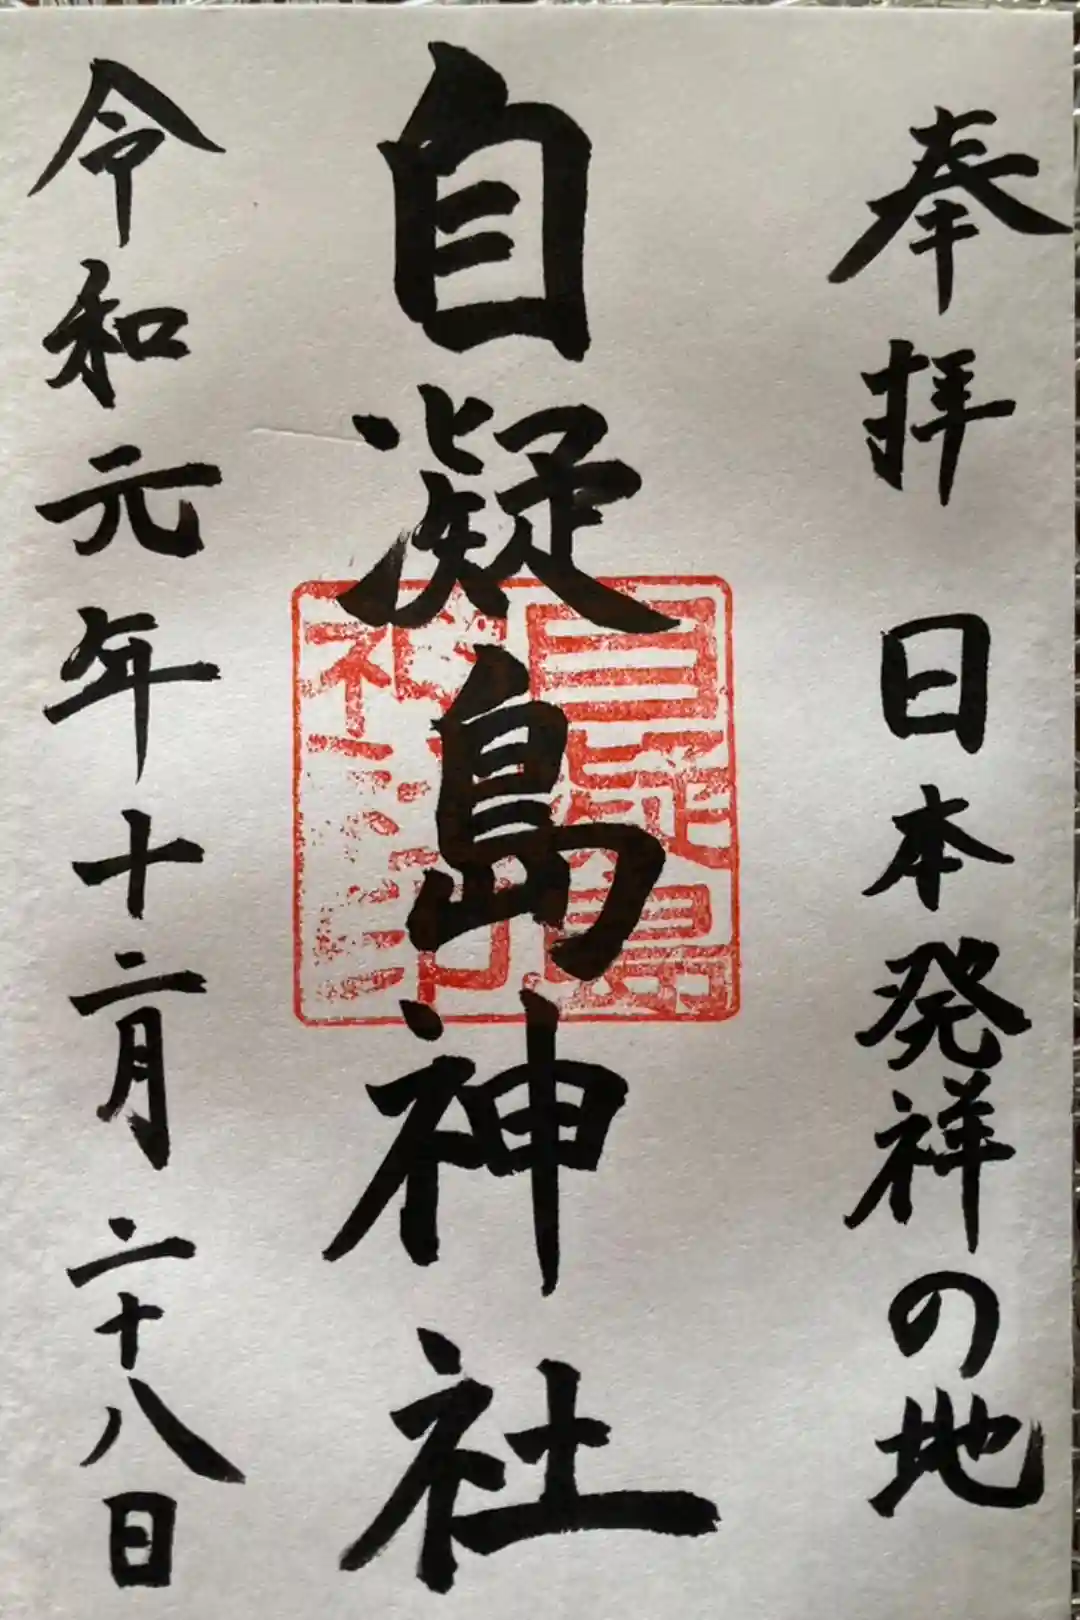 奉拝 日本発祥の地
自凝島神社
令和元年十二月二十八日